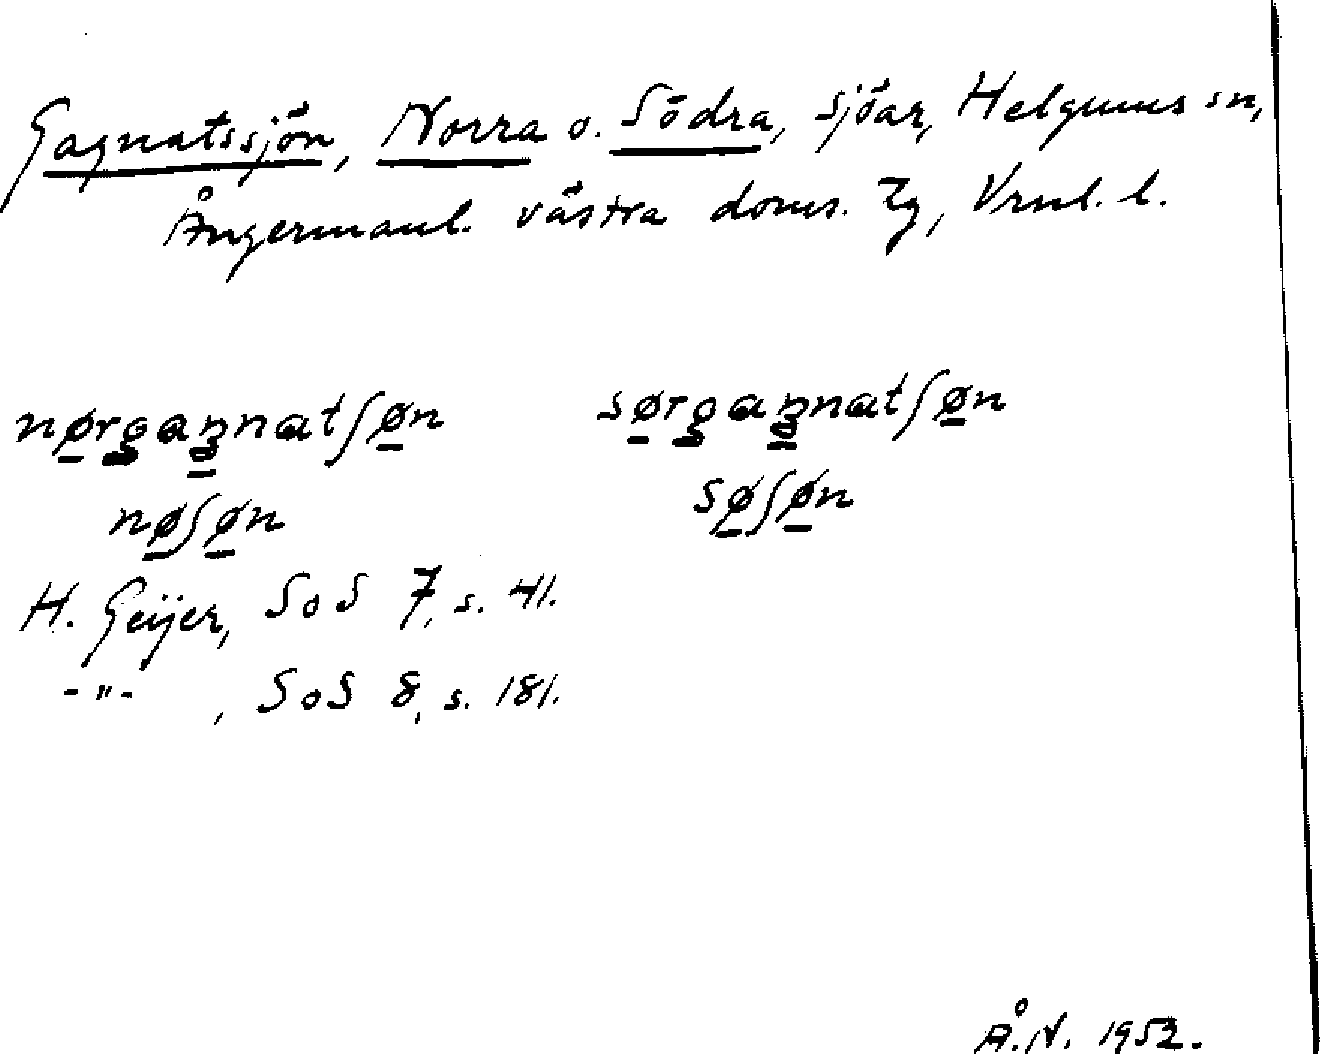 Gagnatssjön, Norra o. Södra, sjöar, Helgums sn,
Ångermanl. västra doms. tg, Vrnl. l.
nørgaʒnatʃøn sørgaʒnatʃøn
nøʃøn søʃøn
H. Geijer, SoS 7, s. 41.
-"- , SoS 8, s. 181.
Å.N. 1952.